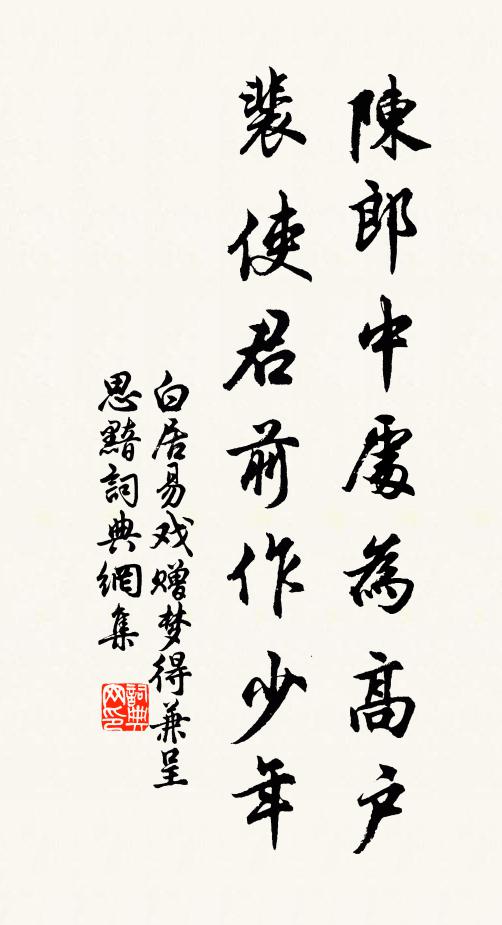 陳郎中處為高户
裴使君前作少年
白居易戏赠梦得兼呈
思黯詞典網集
詞典网印